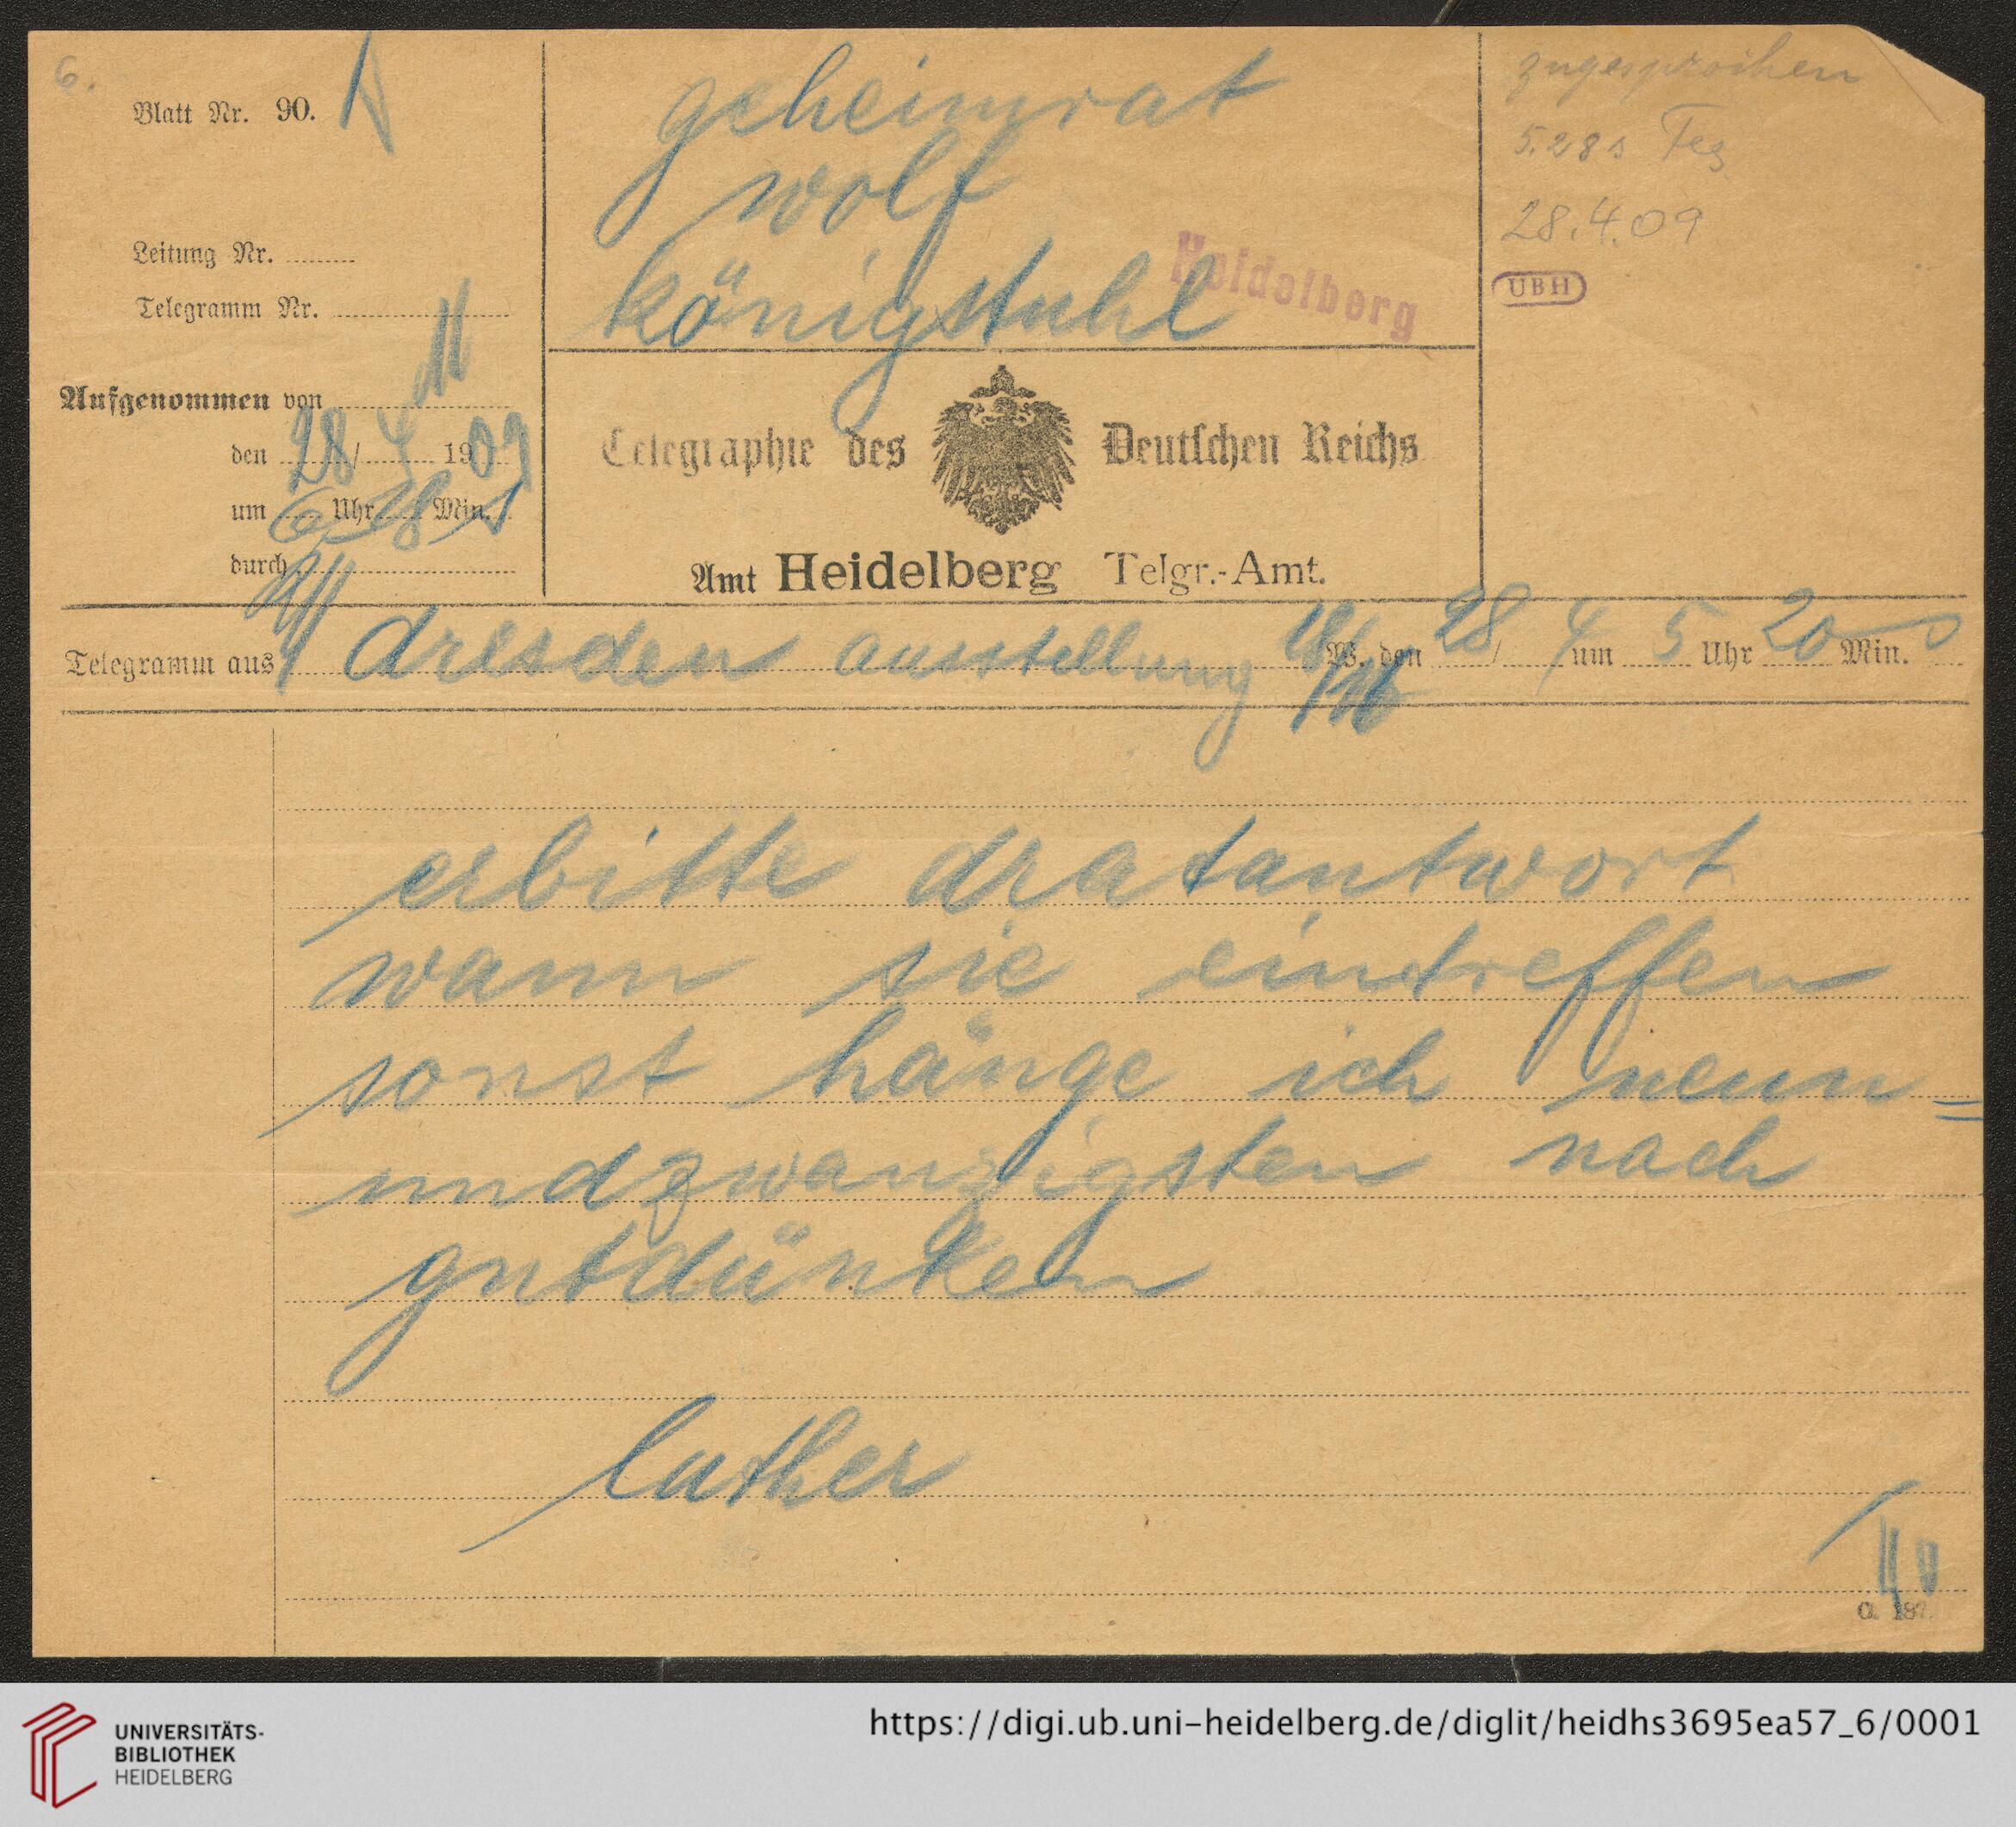 6.
Blatt Nr. 90.
Leitung Nr.
Telegramm Nr.
Aufgenommen von
den 28/4 1909
um Uhr Min.
durch
geheimrat
wolf
königstuhl
Heidelberg
zugesprochen
5.28 s
28.4.09
UBH
Telegraphie des Deutschen Reichs
Amt Heidelberg Telgr.-Amt.
Telegramm aus dresden ausstellung W. den 28/4 um 5 Uhr 20 Min.
erbitte dratantwort
wann sie eintreffen
sonst hänge ich neun=
undzwanzigsten nach
gutdünken
luther
C. 187.
UNIVERSITÄTS-
BIBLIOTHEK
HEIDELBERG
https://digi.ub.uni-heidelberg.de/diglit/heidhs3695ea57_6/0001